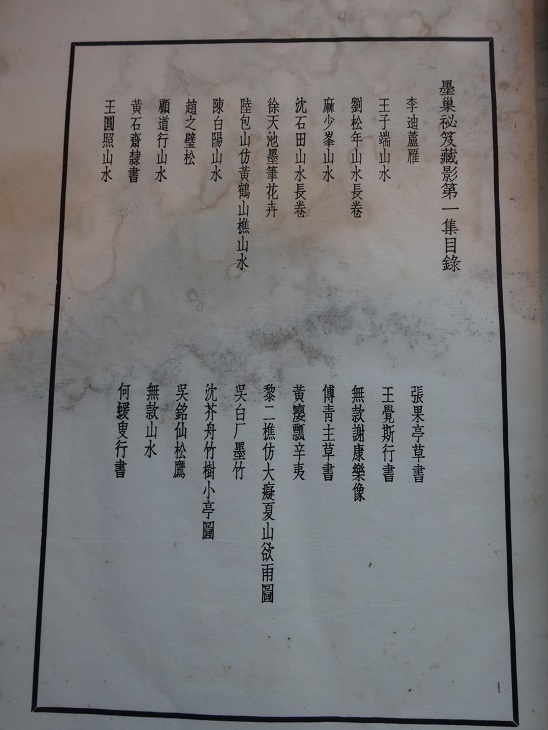 墨巢祕笈藏影第一集目錄
李迪蘆雁
王子端山水
劉松年山水長卷
麻少峯山水
沈石田山水長卷
徐天池墨筆花卉
陸包山仿黃鶴山樵山水
陳白陽山水
趙之璧松
顧道行山水
黃石齋隸書
王圓照山水
張果亭草書
王覺斯行書
無款謝康樂像
傅青主草書
黃癭瓢辛夷
黎二樵仿大癡夏山欲雨圖
吳白厂墨竹
沈芥舟竹樹小亭圖
吳銘仙松鷹
無款山水
何蝯叟行書